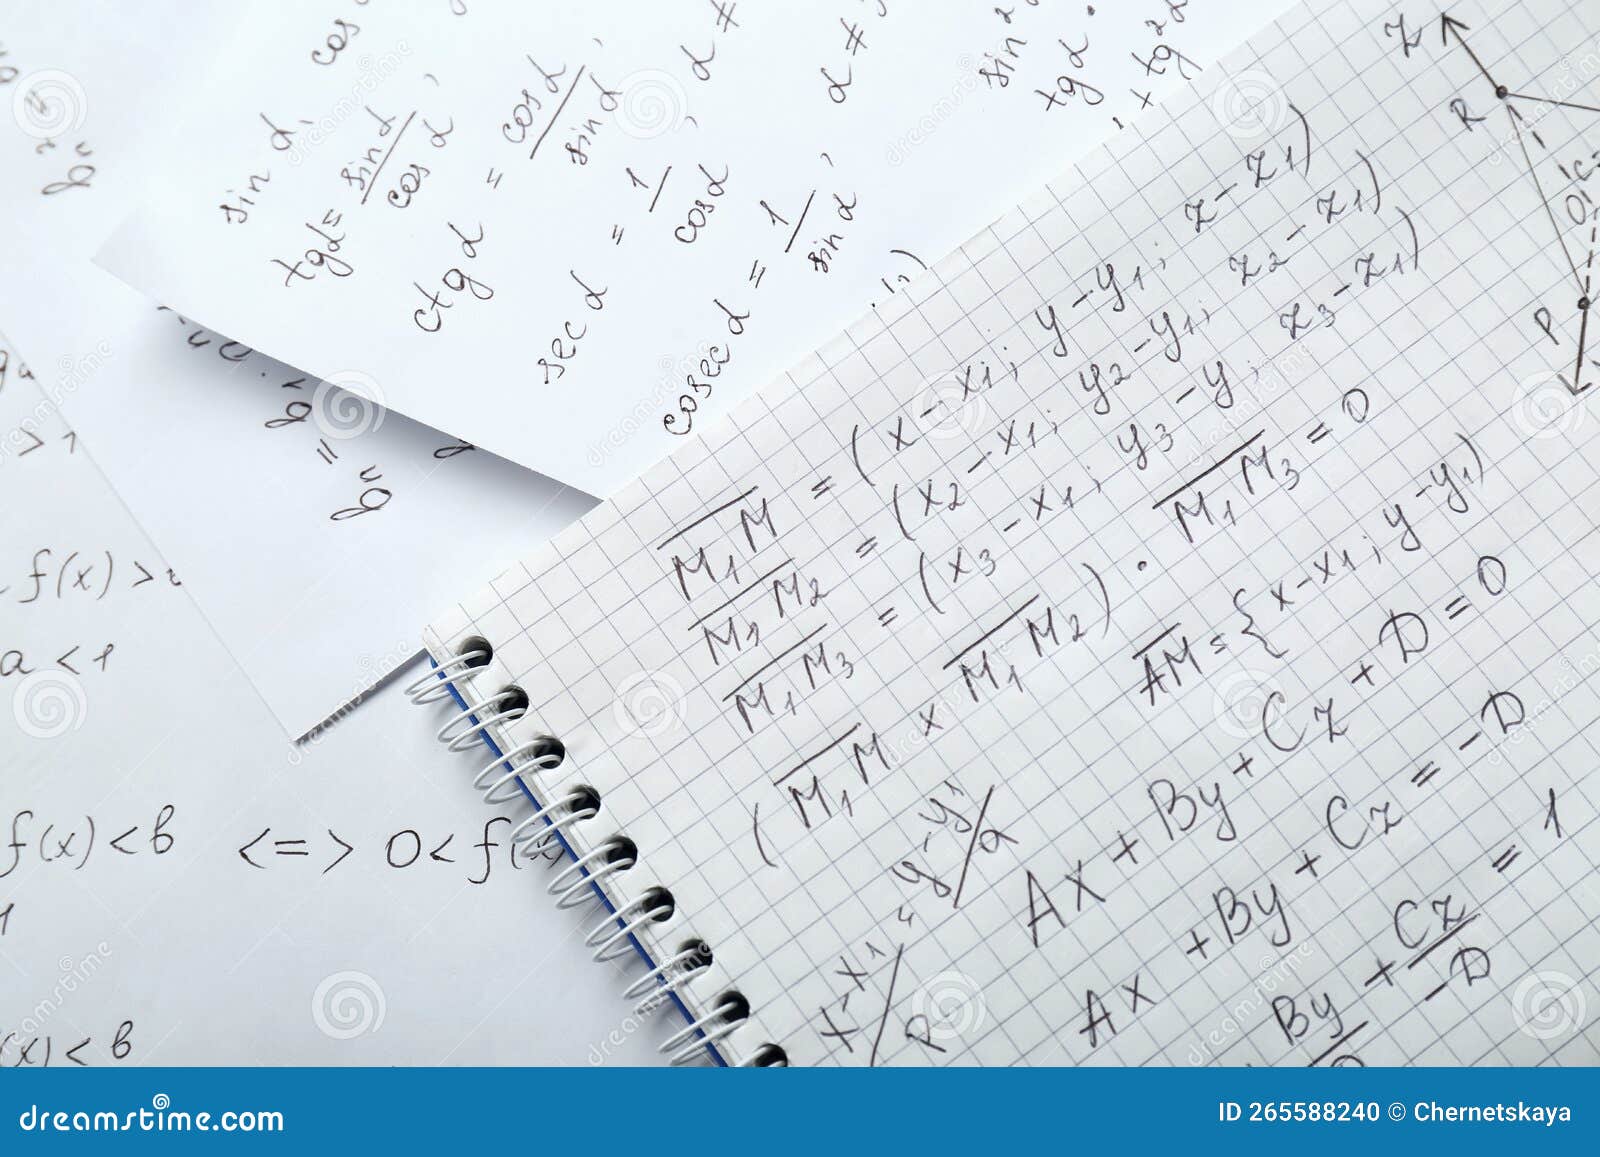 sin α,
cos
tgα = sinα/cosα,
ctgα = cosα/sinα,
α ≠
secα = 1/cosα,
α ≠
cosecα = 1/sinα,
sin²
tgα ·
+ tg²α
bⁿ
> 1
f(x) >
a < 1
f(x) < b <=> 0 < f(x)
(x) < b
Z
R
P
M₁M = (x - x₁; y - y₁; z - z₁)
M₁M₂ = (x₂ - x₁; y₂ - y₁; z₂ - z₁)
M₁M₃ = (x₃ - x₁; y₃ - y; z₃ - z₁)
(M₁M x M₁M₂) · M₁M₃ = 0
AM = {x - x₁; y - y₁)
x - x₁/p = y - y₁/a
Ax + By + Cz + D = 0
Ax + By + Cz = -D
By + Cz/-D = 1
dreamstime.com
ID 265588240 © Chernetskaya